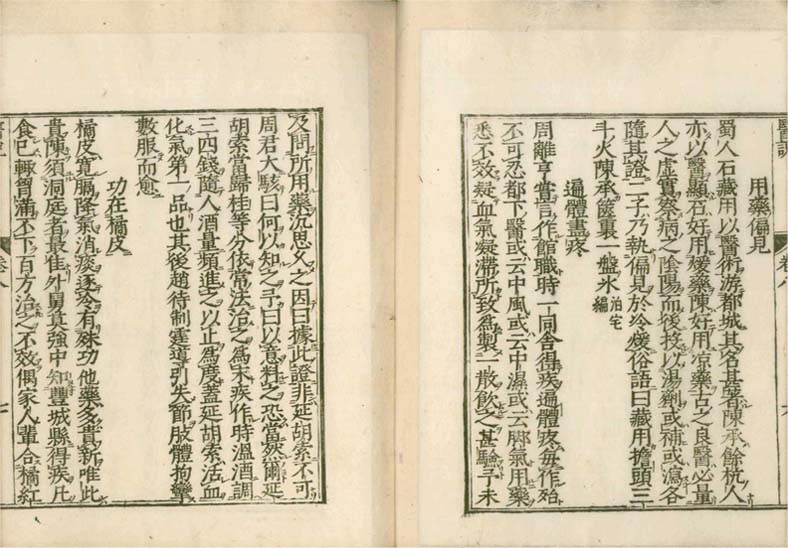 用藥偏見
蜀人石藏用以醫術游都城其名甚著陳承餘杭人
亦以醫顯石好用煖藥陳好用凉藥古之良醫必量
人之虛實察病之陰陽而後投以湯劑或補或瀉各
隨其證二子乃執偏見於冷煖俗語曰藏用擔頭三
斗火陳承篋裏一盤氷 泊宅編
遍體盡疼
周離亨嘗言作館職時一同舍得疾遍體疼每作殆
不可忍都下醫或云中風或云中濕或云脚氣用藥
悉不效疑血氣凝滯所致爲製一散飲之甚驗予未
及問所用藥沉思久之因曰據此證非延胡索不可
周君大駭曰何以知之予曰以意料之恐當然爾延
胡索當歸桂等分依常法治之爲末疾作時溫酒調
三四錢隨人酒量頻進之以止爲度蓋延胡索活血
化氣第一品也其後趙待制霆導引失節肢體拘攣
數服而愈
功在橘皮
橘皮寛膈降氣消痰逐冷有殊功他藥多貴新唯此
貴陳須洞庭者最佳外舅莫強中知豐城縣得疾凡
食已輙胷滿不下百方治之不效偶家人輩合橘紅